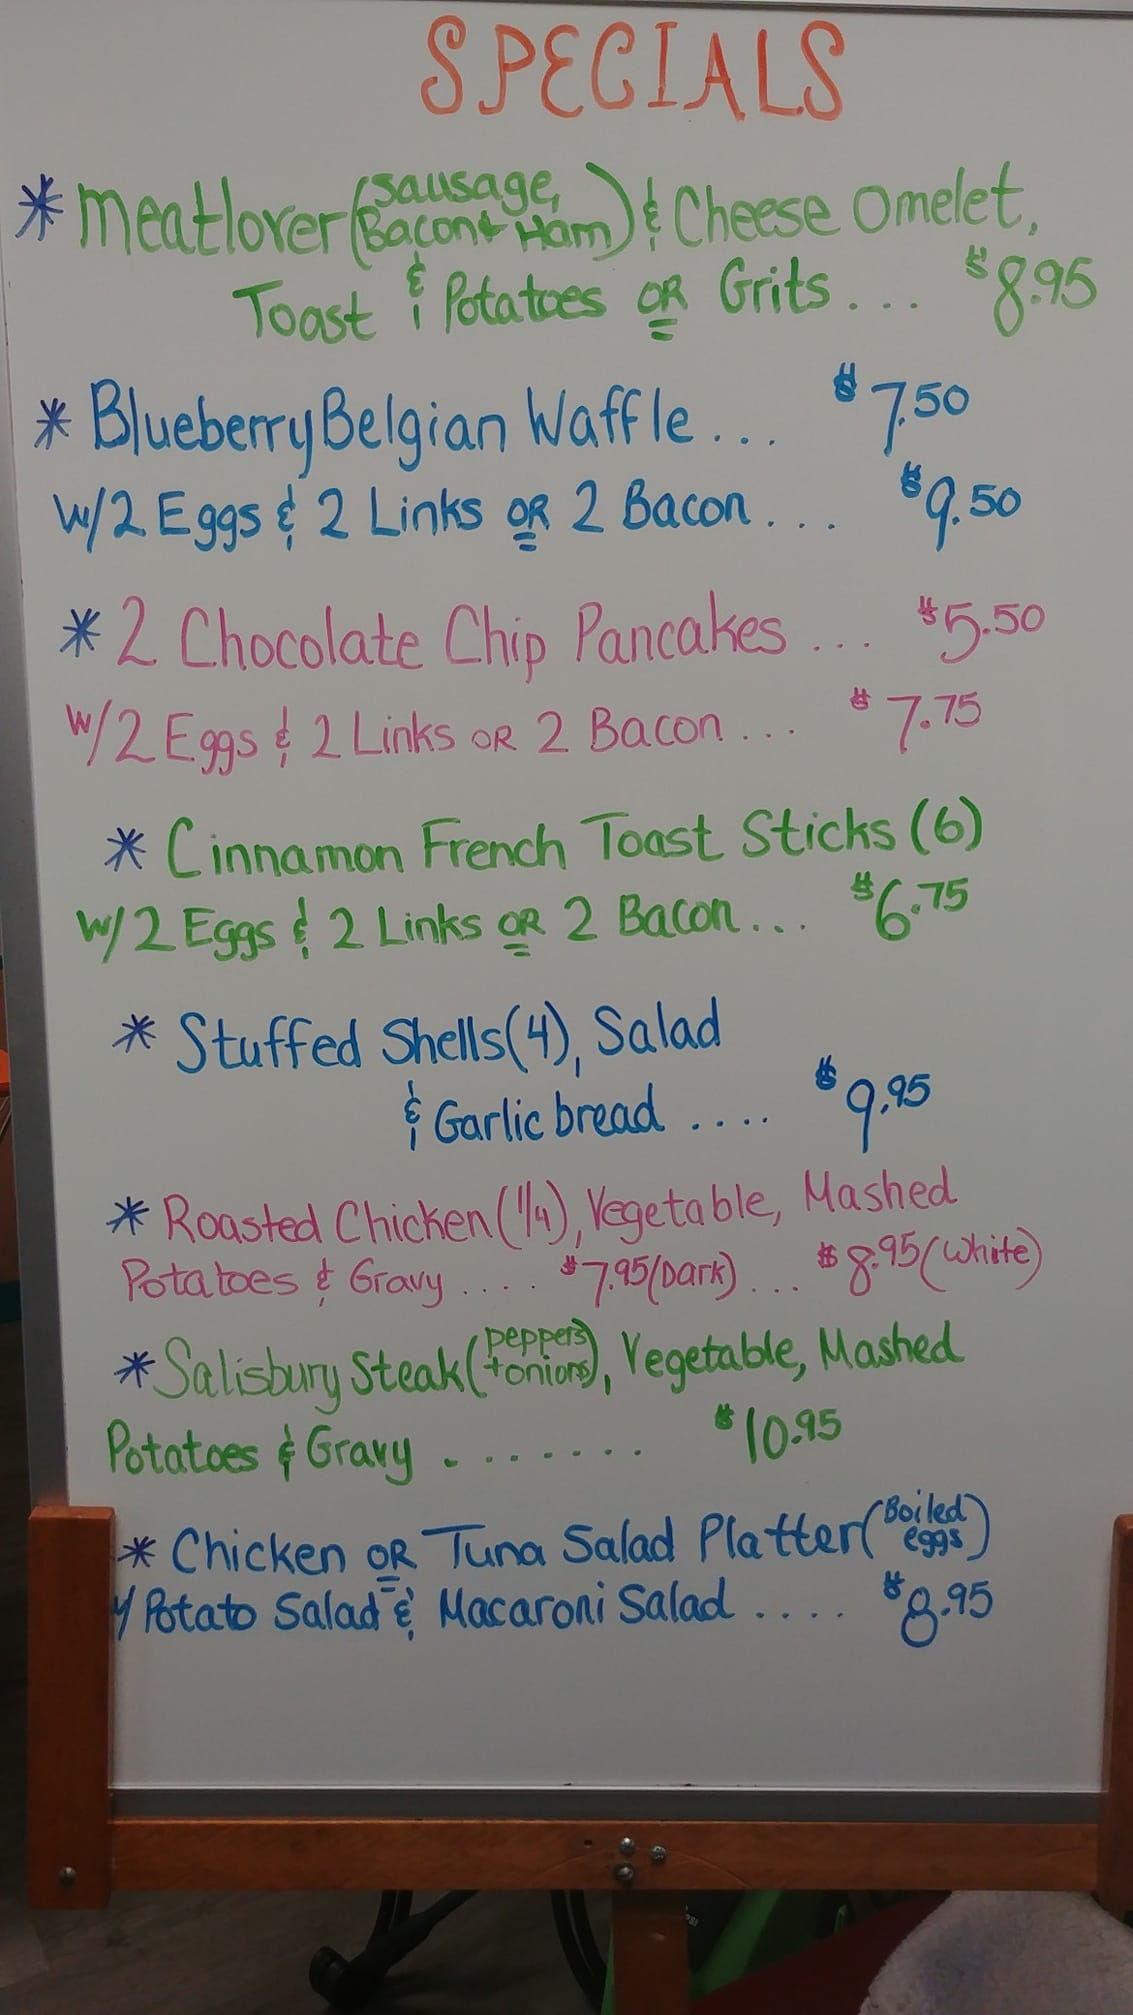 SPECIALS
* Meatlover (Sausage, Bacon + Ham) & Cheese Omelet,
Toast & Potatoes OR Grits... $8.95
* Blueberry Belgian Waffle... $7.50
W/2 Eggs & 2 Links OR 2 Bacon... $9.50
* 2 Chocolate Chip Pancakes... $5.50
W/2 Eggs & 2 Links OR 2 Bacon... $7.75
* Cinnamon French Toast Sticks (6)
W/2 Eggs & 2 Links OR 2 Bacon... $6.75
* Stuffed Shells (4), Salad
& Garlic bread .... $9.95
* Roasted Chicken (1/4), Vegetable, Mashed
Potatoes & Gravy .... $7.95 (Dark)... $8.95 (White)
* Salisbury Steak (peppers + onions), Vegetable, Mashed
Potatoes & Gravy ....... $10.95
* Chicken OR Tuna Salad Platter (Boiled eggs)
W/ Potato Salad & Macaroni Salad .... $8.95